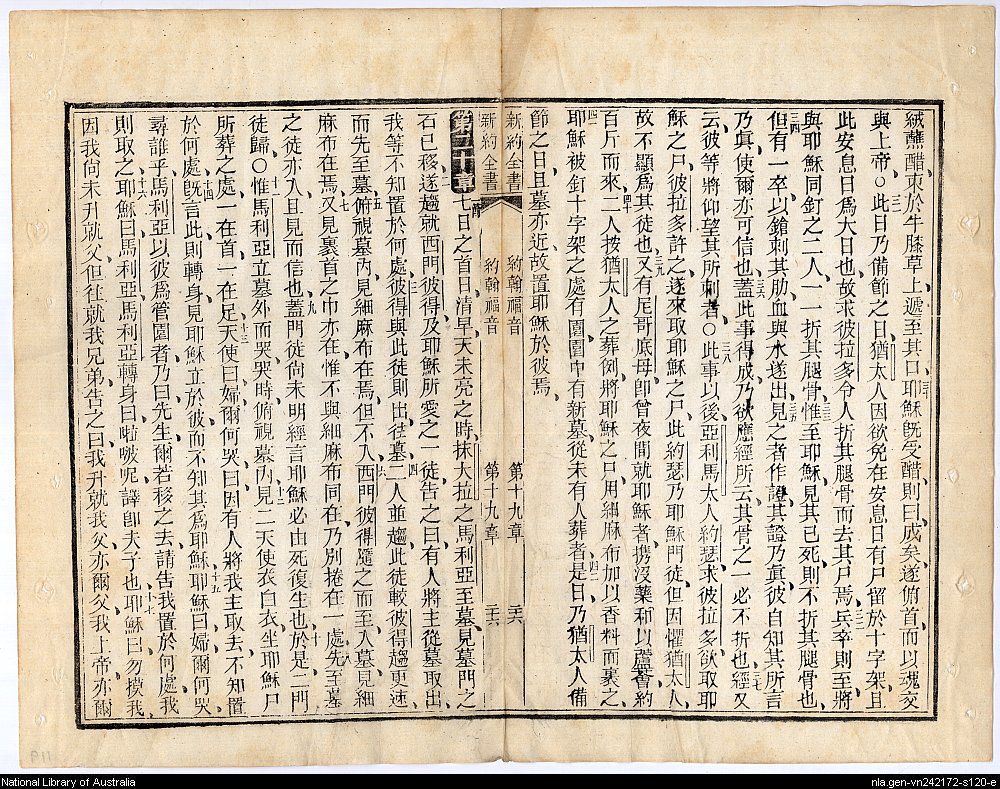 絨蘸醋束於牛膝草上遞至其口耶穌旣受醋則曰成矣遂俯首而以魂交
與上帝○此日乃備節之日猶太人因欲免在安息日有尸留於十字架且
此安息日爲大日也故求彼拉多令人折其腿骨而去其尸焉兵卒則至將
與耶穌同釘之二人一一折其腿骨惟至耶穌見其已死則不折其腿骨也
但有一卒以鎗刺其肋血與水遂出見之者作證其證乃眞彼自知其所言
乃眞使爾亦可信也蓋此事得成乃欲應經所云其骨之一必不折也經又
云彼等將仰望其所刺者○此事以後亞利馬太人約瑟求彼拉多欲取耶
穌之尸彼拉多許之遂來取耶穌之尸此約瑟乃耶穌門徒但因懼猶太人
故不顯爲其徒也又有尼哥底母卽曾夜間就耶穌者携沒藥和以蘆薈約
百斤而來二人按猶太人之葬例將耶穌之尸用細麻布加以香料而裹之
耶穌被釘十字架之處有園園中有新墓從未有人葬者是日乃猶太人備
節之日且墓亦近故置耶穌於彼焉
新約全書 約翰福音 第十九章 二十六
新約全書 約翰福音 第十九章 二十六
第二十章 七日之首日清早天未亮之時抹大拉之馬利亞至墓見墓門之
石已移遂趨就西門彼得及耶穌所愛之一徒告之曰有人將主從墓取出
我等不知置於何處彼得與此徒則出往墓二人並趨此徒較彼得趨更速
而先至墓俯視墓內見細麻布在焉但不入西門彼得隨之而至入墓見細
麻布在焉又見裹首之巾亦在惟不與細麻布同在乃別捲在一處先至墓
之徒亦入且見而信也蓋門徒尚未明經言耶穌必由死復生也於是二門
徒歸○惟馬利亞立墓外而哭哭時俯視墓內見二天使衣白衣坐耶穌尸
所葬之處一在首一在足天使曰婦爾何哭曰因有人將我主取去不知置
於何處旣言此則轉身見耶穌立於彼而不知其爲耶穌耶穌曰婦爾何哭
尋誰乎馬利亞以彼爲管園者乃曰先生爾若移之去請告我置於何處我
則取之耶穌曰馬利亞馬利亞轉身曰啦啵呢譯卽夫子也耶穌曰勿摸我
因我尚未升就父但往就我兄弟告之曰我升就我父亦爾父我上帝亦爾
P11
National Library of Australia
nla.gen-vn242172-s120-e